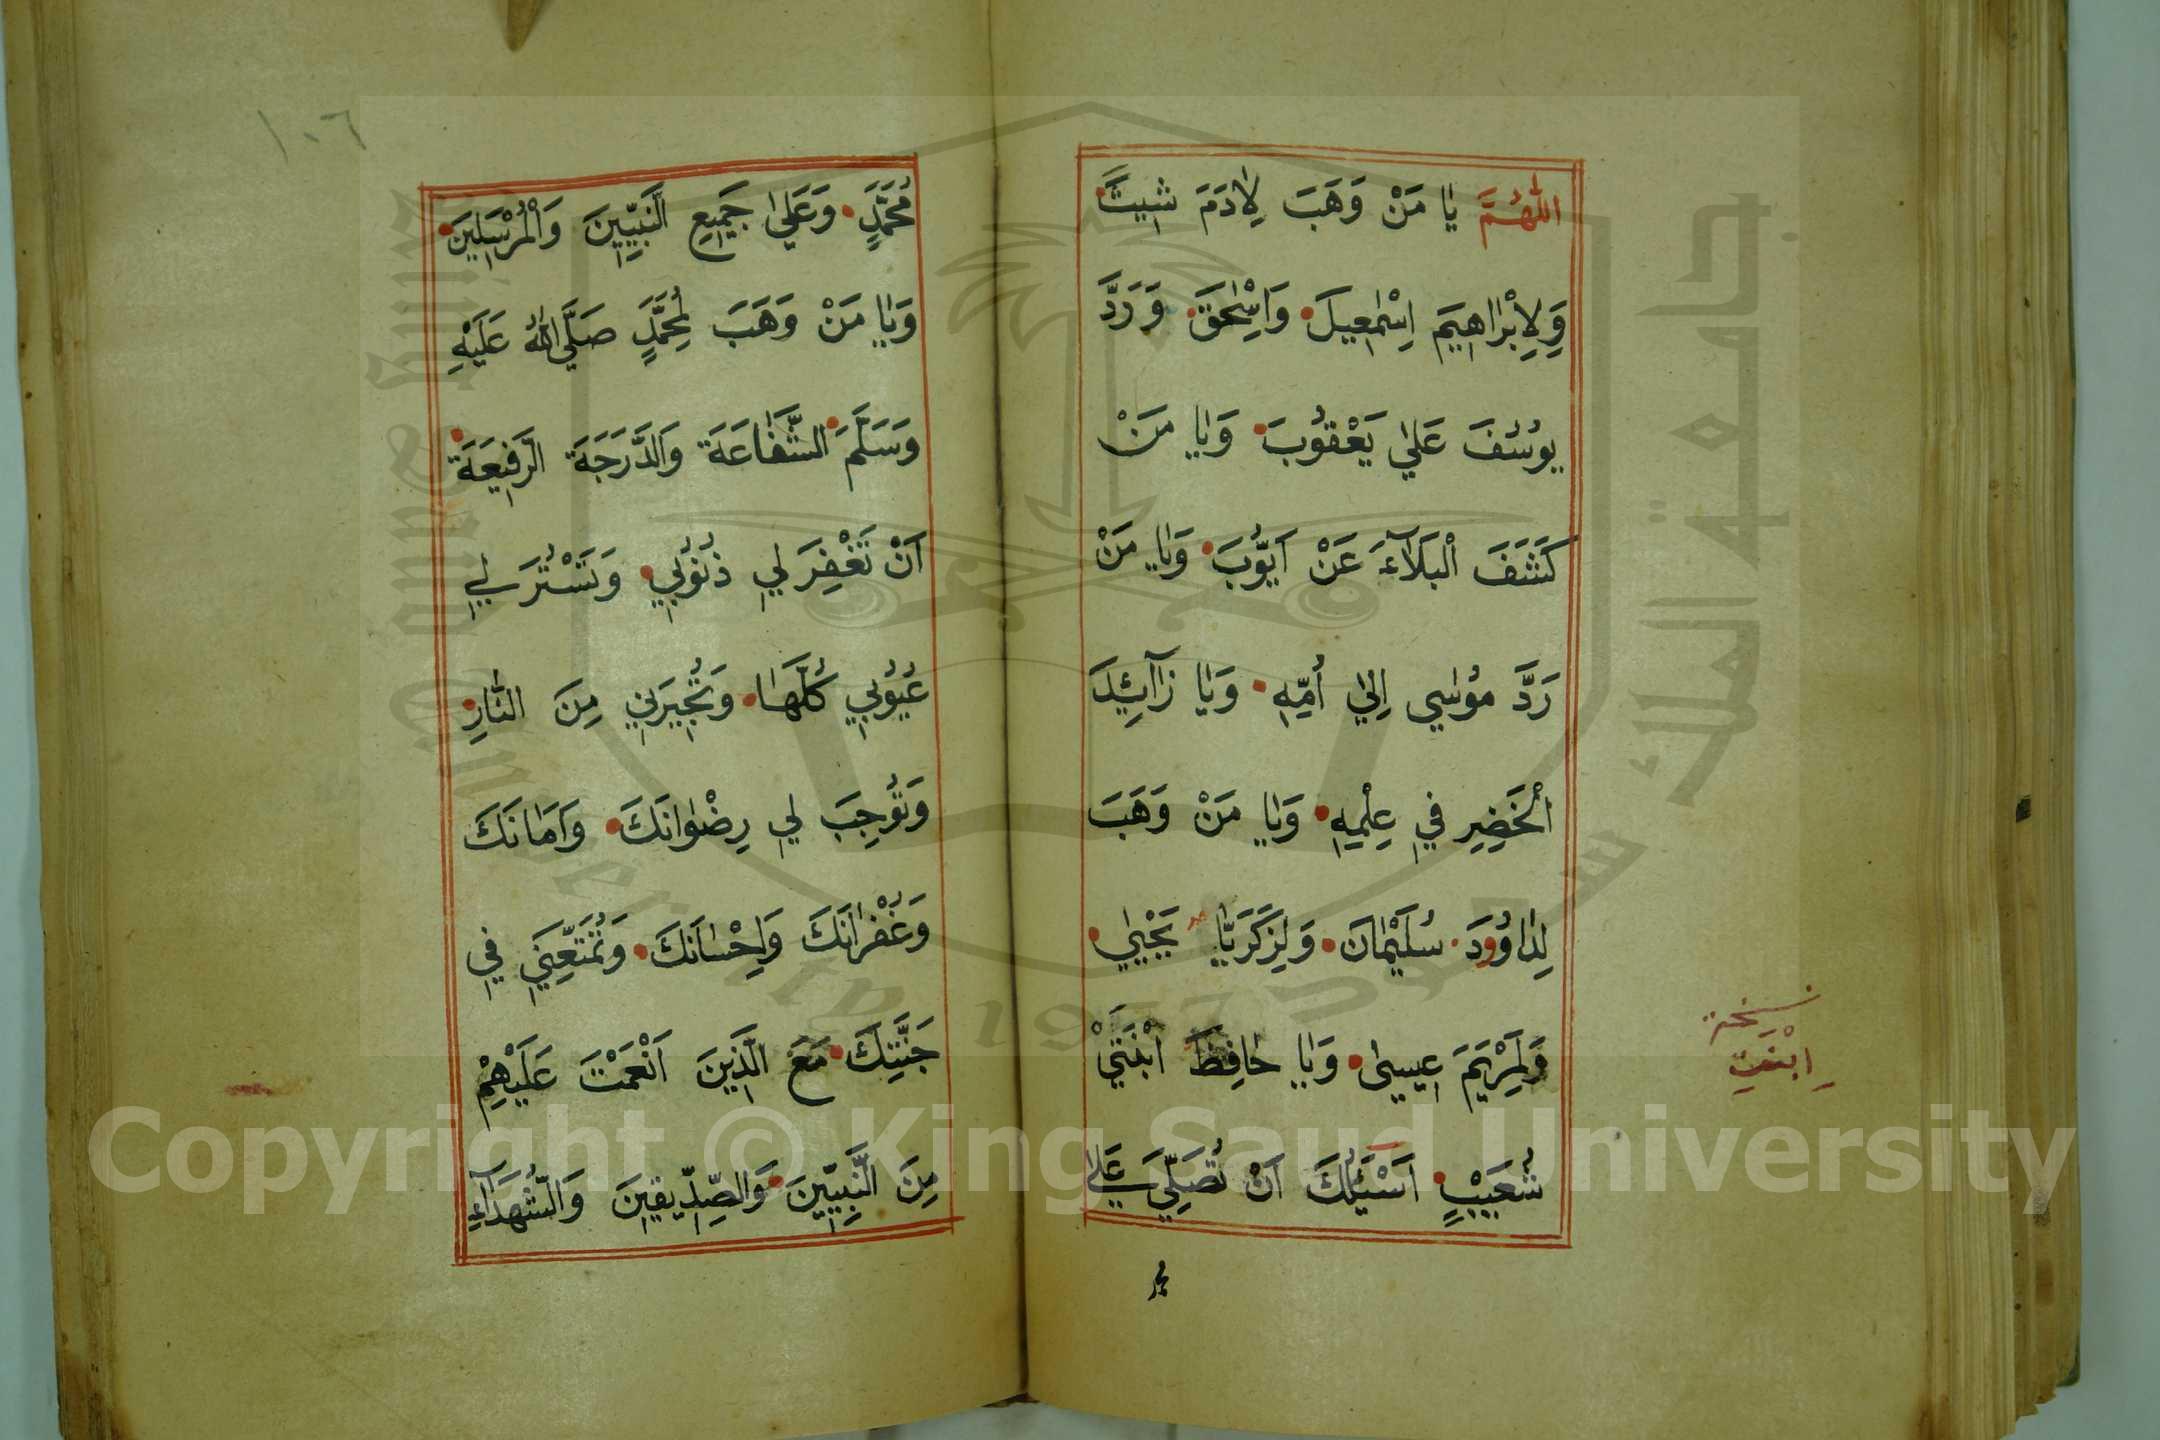 اَللّٰهُمَّ يَا مَنْ وَهَبَ لِاٰدَمَ شِيثَ
وَلِاِبْرَاهِيمَ اِسْمٰعِيلَ وَاِسْحٰقَ وَرَدَّ
يُوسُفَ عَلٰي يَعْقُوبَ وَيَا مَنْ
كَشَفَ الْبَلَآءَ عَنْ اَيُّوبَ وَيَا مَنْ
رَدَّ مُوسٰي اِلٰي اُمِّهِ وَيَا زَآئِدَ
الْخَضِرِ فِي عِلْمِهِ وَيَا مَنْ وَهَبَ
لِدَاوُودَ سُلَيْمٰانَ وَلِزَكَرِيَّا يَحْيٰي
وَلِمَرْيَمَ عِيسٰي وَيَا حَافِظَ ابْنَتَيْ
شُعَيْبٍ اَسْئَلُكَ اَنْ تُصَلِّيَ عَلٰي
محمد
نسخة
ابنت
١٠٦
مُحَمَّدٍ وَعَلٰي جَمِيعِ النَّبِيِّينَ وَالْمُرْسَلِينَ
وَيَا مَنْ وَهَبَ لِمُحَمَّدٍ صَلَّي اللّٰهُ عَلَيْهِ
وَسَلَّمَ الشَّفَاعَةَ وَالدَّرَجَةَ الرَّفِيعَةَ
اَنْ تَغْفِرَ لِي ذُنُوبِي وَتَسْتُرَ لِي
عُيُوبِي كُلَّهَا وَتُجِيرَنِي مِنَ النَّارِ
وَتُوجِبَ لِي رِضْوَانَكَ وَاَمَانَكَ
وَغُفْرَانَكَ وَاِحْسَانَكَ وَتُمَتِّعَنِي فِي
جَنَّتِكَ مَعَ الَّذِينَ اَنْعَمْتَ عَلَيْهِمْ
مِنَ النَّبِيِّينَ وَالصِّدِّيقِينَ وَالشُّهَدَآءِ
جامعة الملك سعود
King Saud University 1957
Copyright © King Saud University